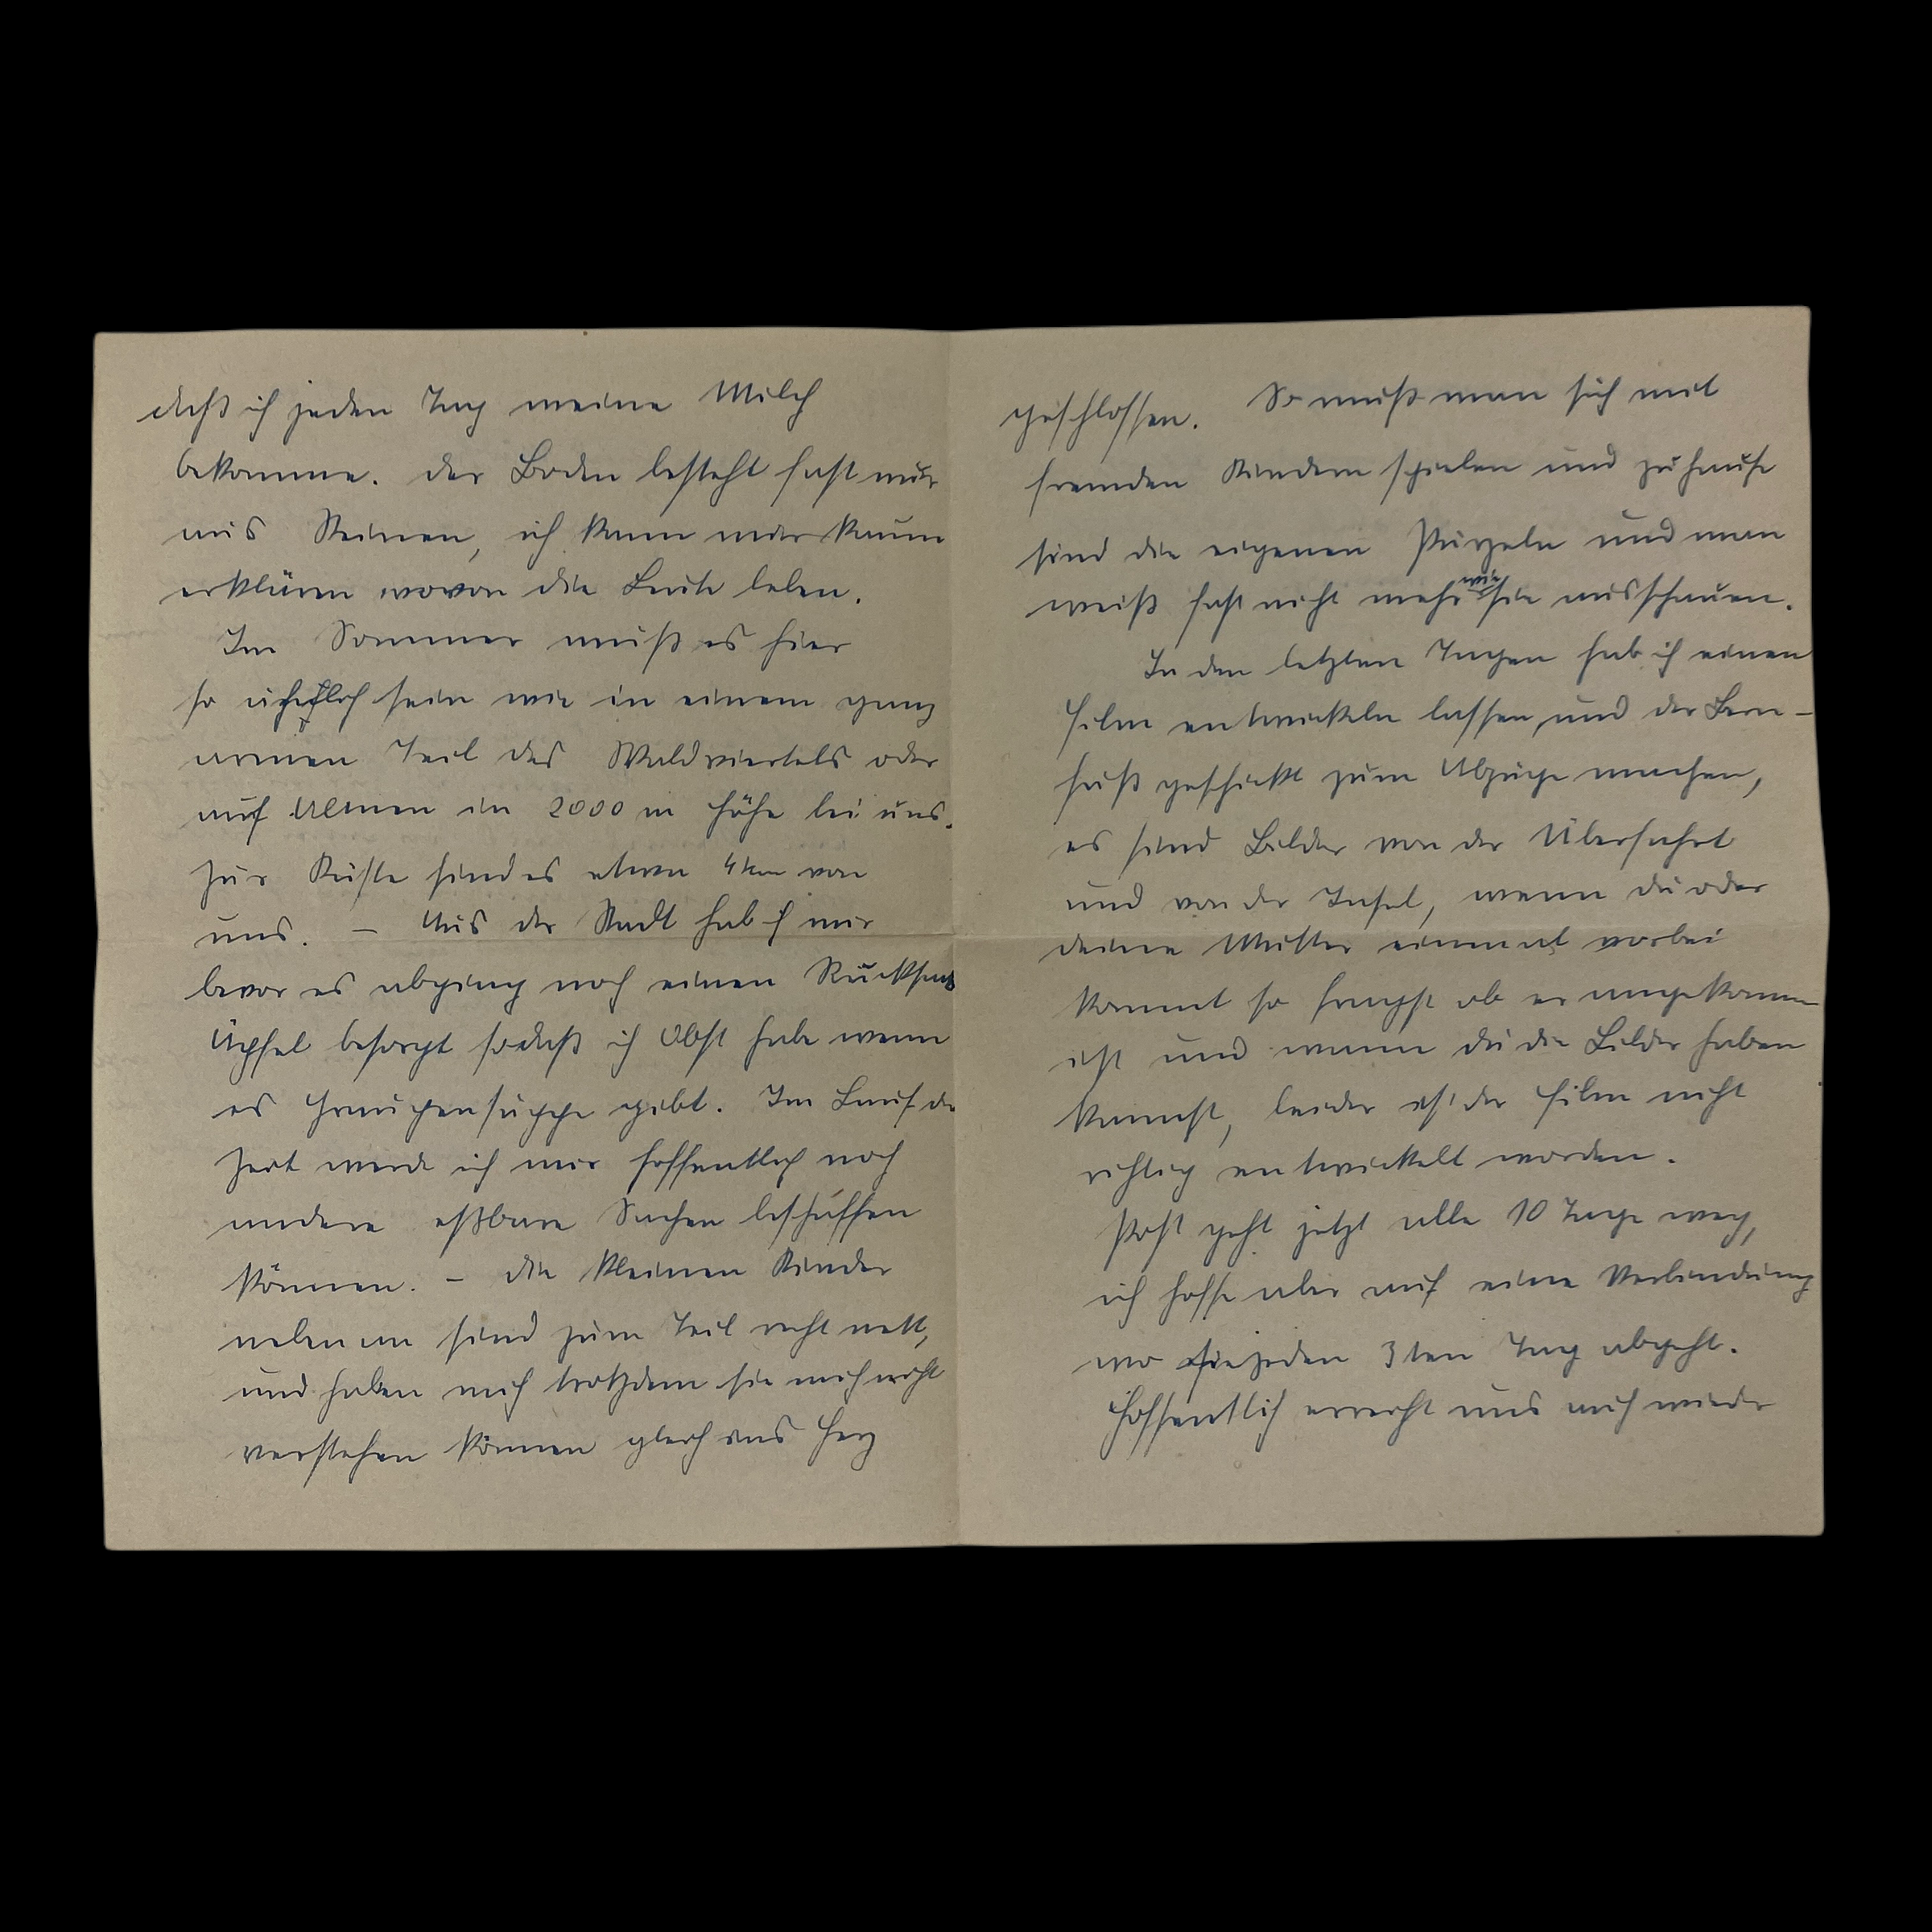 daß ich jeden Tag meine Milch
bekomme. Der Boden besteht fast nur
aus Steinen, ich kann mir kaum
erklären wovon die Leute leben.
Im Sommer muß es hier
so ähnlich sein wie in einem ganz
armen Teil des Waldviertels oder
auf Almen in 2000 m Höhe bei uns.
Zur Küste sind es etwa 4 km von
uns. – Aus der Stadt hab ich mir
bevor es abging noch einen Rucksack
Äpfel besorgt sodaß ich Obst habe wenn
es Graupensuppe gibt. Im Lauf der
Zeit werde ich mir hoffentlich noch
andere eßbare Sachen beschaffen
können. – Die kleinen Kinder
nebenan sind zum Teil recht nett,
und haben mich trotzdem sie mich nicht
verstehen können gleich ins Herz
geschlossen. So muß man sich mit
fremden Kindern spielen und zuhause
sind die eigenen Purzeln und man
weiß fast nicht mehr wie sie ausschauen.
In den letzten Tagen hab ich einen
Film entwickeln lassen, und der Barn-
fuß geschickt zum Abzüge machen,
es sind Bilder von der Überfahrt
und von der Insel, wenn du oder
deine Mutter einmal vorbei
kommt so fragst ob er angekommen
ist und wann du die Bilder haben
kannst, leider ist der Film nicht
richtig entwickelt worden.
Post geht jetzt alle 10 Tage weg,
ich hoffe aber auf eine Verbindung
wo sie jeden 3ten Tag abgeht.
Hoffentlich erreicht uns auch wieder